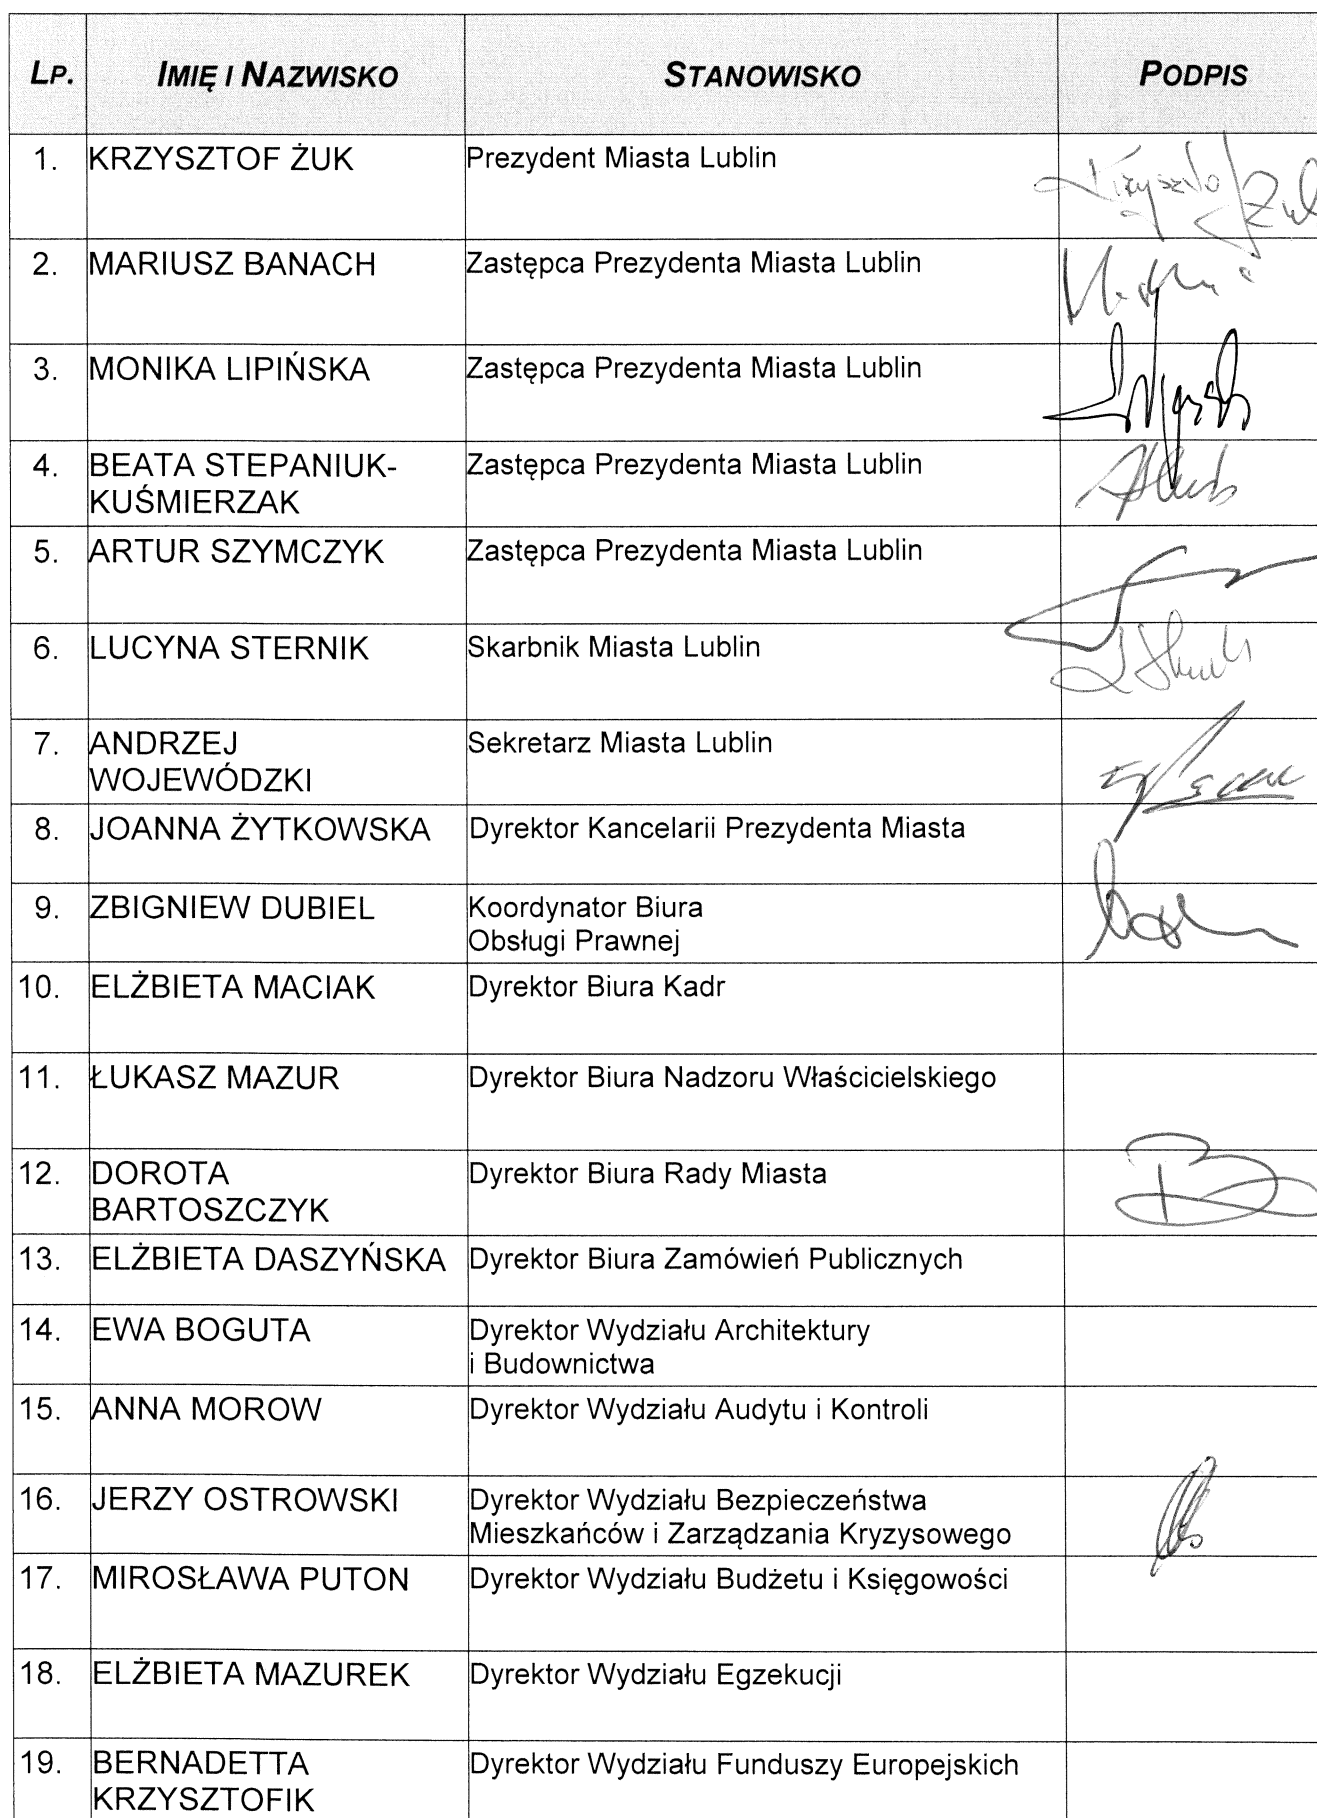 LP. IMIĘ I NAZWISKO STANOWISKO PODPIS
1. KRZYSZTOF ŻUK Prezydent Miasta Lublin Krzysztof Żuk
2. MARIUSZ BANACH Zastępca Prezydenta Miasta Lublin
3. MONIKA LIPIŃSKA Zastępca Prezydenta Miasta Lublin
4. BEATA STEPANIUK- Zastępca Prezydenta Miasta Lublin
KUŚMIERZAK
5. ARTUR SZYMCZYK Zastępca Prezydenta Miasta Lublin
6. LUCYNA STERNIK Skarbnik Miasta Lublin
7. ANDRZEJ Sekretarz Miasta Lublin
WOJEWÓDZKI
8. JOANNA ŻYTKOWSKA Dyrektor Kancelarii Prezydenta Miasta
9. ZBIGNIEW DUBIEL Koordynator Biura
Obsługi Prawnej
10. ELŻBIETA MACIAK Dyrektor Biura Kadr
11. ŁUKASZ MAZUR Dyrektor Biura Nadzoru Właścicielskiego
12. DOROTA Dyrektor Biura Rady Miasta
BARTOSZCZYK
13. ELŻBIETA DASZYŃSKA Dyrektor Biura Zamówień Publicznych
14. EWA BOGUTA Dyrektor Wydziału Architektury
i Budownictwa
15. ANNA MOROW Dyrektor Wydziału Audytu i Kontroli
16. JERZY OSTROWSKI Dyrektor Wydziału Bezpieczeństwa
Mieszkańców i Zarządzania Kryzysowego
17. MIROSŁAWA PUTON Dyrektor Wydziału Budżetu i Księgowości
18. ELŻBIETA MAZUREK Dyrektor Wydziału Egzekucji
19. BERNADETTA Dyrektor Wydziału Funduszy Europejskich
KRZYSZTOFIK